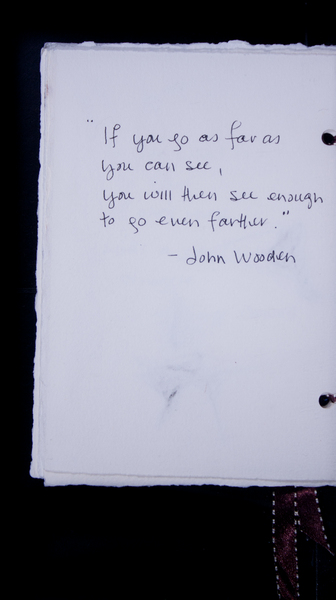 "If you go as far as
you can see,
you will then see enough
to go even farther."
- John Wooden